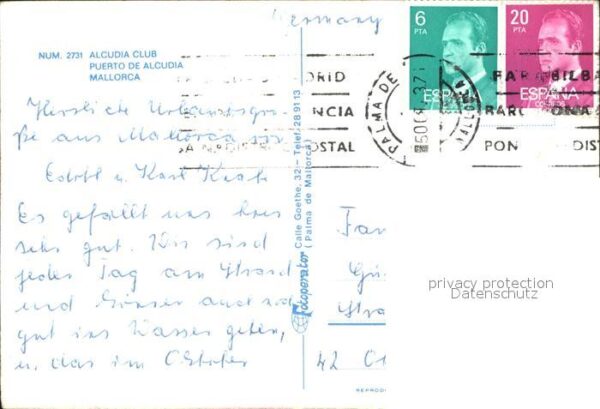 Germany
NUM. 2731 ALCUDIA CLUB
PUERTO DE ALCUDIA
MALLORCA
6
PTA
ESPAÑA
20
PTA
ESPAÑA
CORREOS
PALMA DE
MALLORCA
DRID
NCIA
OSTAL
BILBA
BARC ONA
PON DIST
Herzliche Urlaubsgrü-
ße aus Mallorca
u. Karl
Es gefällt uns hier
sehr gut. Wir sind
jeden Tag am Strand
und können auch noch
gut ins Wasser gehen,
u. das im Oktober
Fotoperator
Calle Goethe, 32 - Telef. 28 91 13
(Palma de Mallorca)
Fam
Gü
Stra
42
REPROD
privacy protection
Datenschutz